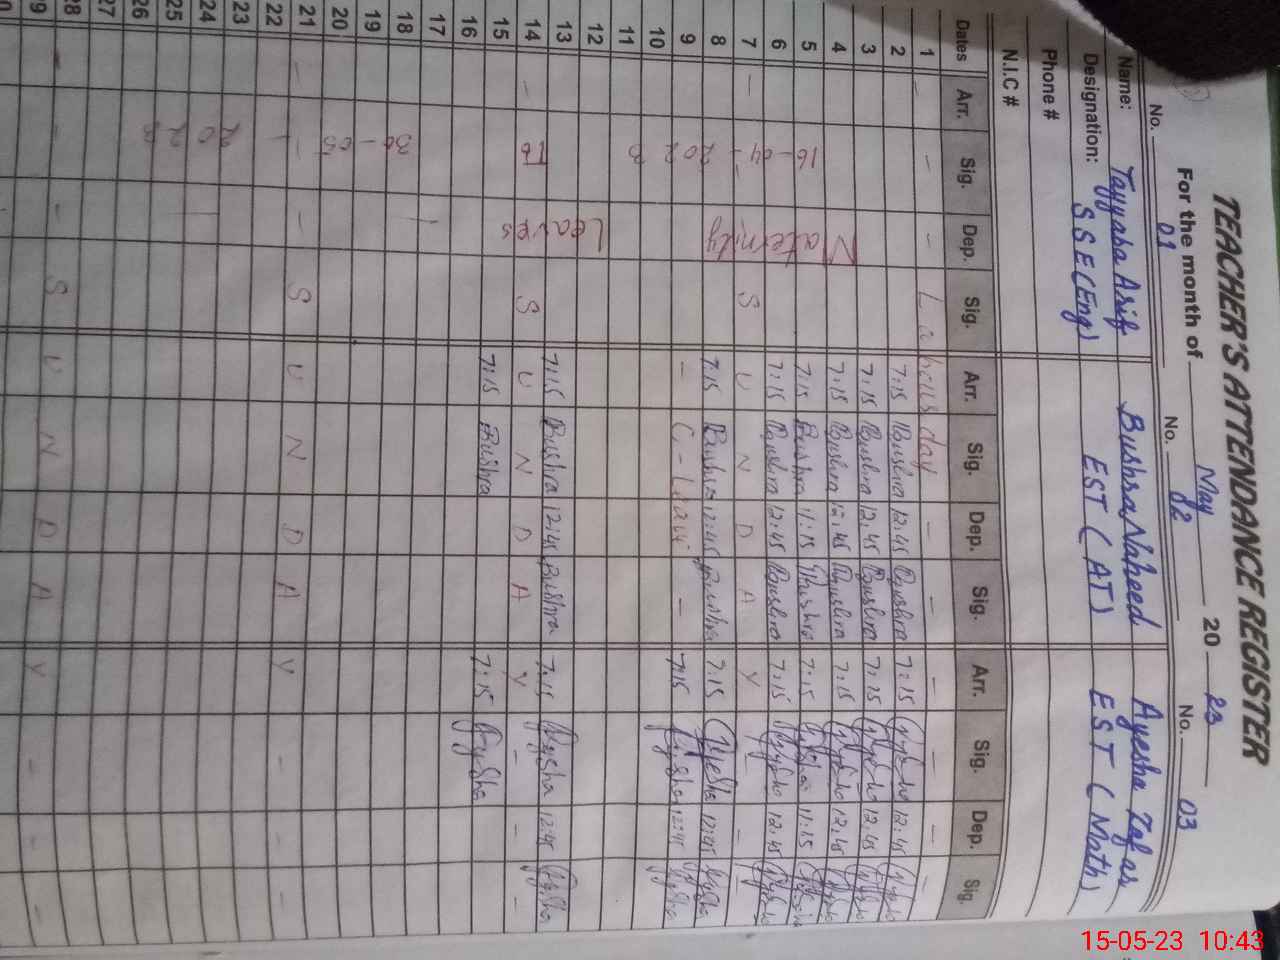 TEACHER'S ATTENDANCE REGISTER
For the month of May 2023
No. 01 No. 02 No. 03
Name: Tayyaba Asif Bushra Naheed Ayesha Zafar
Designation: SSE (Eng) EST (AT) EST (Math)
Phone #
N.I.C #
Dates Arr. Sig. Dep. Sig. Arr. Sig. Dep. Sig. Arr. Sig. Dep. Sig.
1 - - - Labours day - - - - - -
2 7:15 Bushra 12:45 Bushra 7:15 Ayesha 12:45 Ayesha
3 7:15 Bushra 12:45 Bushra 7:15 Ayesha 12:45 Ayesha
4 7:15 Bushra 12:45 Bushra 7:15 Ayesha 12:45 Ayesha
5 7:15 Bushra 11:15 Bushra 7:15 Ayesha 11:15 Ayesha
6 7:15 Bushra 12:45 Bushra 7:15 Ayesha 12:45 Ayesha
7 - - S U N D A Y - - -
8 7:15 Bushra 12:45 Bushra 7:15 Ayesha 12:45 Ayesha
9 - C-Leave - 7:15 Ayesha 12:45 Ayesha
10
11
12
13 7:15 Bushra 12:45 Bushra 7:15 Ayesha 12:45 Ayesha
14 - S U N D A Y - - -
15 7:15 Bushra 7:15 Ayesha
16
17
18
19
20
21 - - - S U N D A Y - - -
22
23
24
25
26
27
28 - - - S U N D A Y - - -
29
Maternity Leaves
16-04-2023
To
30-05
2023
15-05-23 10:43